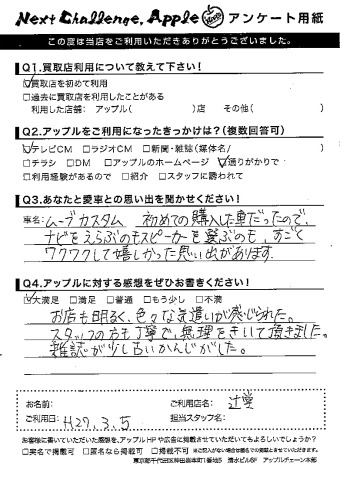 Next Challenge, Apple アンケート用紙
この度は当店をご利用いただきありがとうございました。
Q1.買取店利用について教えて下さい!
☑買取店を初めて利用
□過去に買取店を利用したことがある
利用した店舗: アップル( )店 その他( )
Q2.アップルをご利用になったきっかけは?(複数回答可)
☑テレビCM □ラジオCM □新聞・雑誌(媒体名/ )
□チラシ □DM □アップルのホームページ ☑通りがかりで
□利用経験があるので □紹介 □スタッフに誘われて
Q3.あなたと愛車との思い出を聞かせください!
車名: ムーブカスタム 初めての購入した車だったので、
ナビをえらぶのもスピーカーを選ぶのも、すごく
ワクワクして嬉しかった思い出があります。
Q4.アップルに対する感想をぜひお書きください!
☑大満足 □満足 □普通 □もう少し □不満
お店も明るく、色々な気遣いが感じられた。
スタッフの方も丁寧で、無理をきいて頂きました。
雑誌が少し古いかんじがした。
お名前: ご利用店名: 辻堂
ご利用日: H27.3.5 担当スタッフ名:
お客様に書いていただいた感想を、アップルHPや広告に掲載させていただいてもよろしいでしょうか?
□実名で掲載可 □匿名なら掲載可 □掲載不可 ※ご記入がない場合は匿名での掲載とさせていただきます。
東京都千代田区神田岩本町1番地5 清水ビル6F アップルチェーン本部